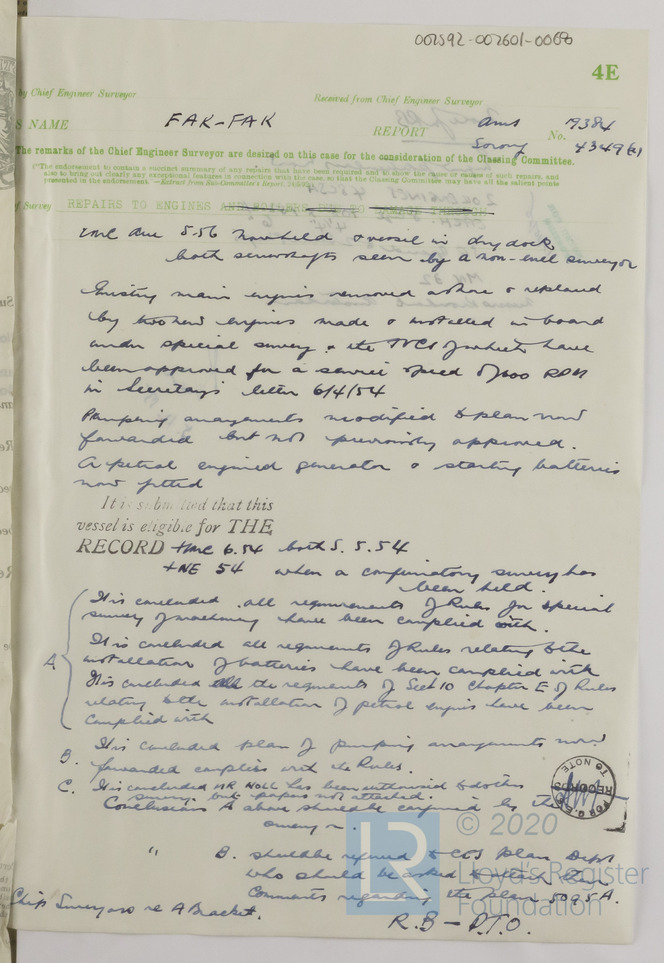 002592-002601-0068
4E
by Chief Engineer Surveyor
Received from Chief Engineer Surveyor
S NAME FAK-FAK REPORT Ams No. 19384
Sorong 4349(c)
The remarks of the Chief Engineer Surveyor are desired on this case for the consideration of the Classing Committee.
(*The endorsement to contain a succinct summary of any repairs that have been required and to show the cause or causes of such repairs, and
also to bring out clearly any exceptional features in connection with the case, so that the Classing Committee may have all the salient points
presented in the endorsement. —Extract from Sub-Committee's Report,
of Survey REPAIRS TO ENGINES
due 5.56 now held & vessel in dry dock,
both screwshafts seen by a non-excl surveyor
Existing main engines removed ashore & replaced
by two new engines made & installed in board
under special survey & the TVCs of which have
been approved for a service speed of 600 RPM
in Secretary's letter 6/4/54
Pumping arrangements modified to plan now
forwarded but not previously approved.
A petrol engined generator & starting batteries
now fitted
It is submitted that this
vessel is eligible for THE
RECORD +LMC 6.54 both S. 5.54
+NE 54 when a confirmatory survey has
been held.
It is concluded all requirements of Rules for special
survey of machinery have been complied with.
A It is concluded all requirements of Rules relating to the
installation of batteries have been complied with
It is concluded the requirements of Sect 10 Chapter E of Rules
relating to the installation of petrol engines have been
complied with
B. It is concluded plan of pumping arrangements now
forwarded complies with the Rules.
C. It is concluded MR NOLL has been authorised to do this
survey, but papers not attached.
Conclusions A above should be confirmed by the
" B. should be referred to CES Plan Dept
who should be asked to their
comments regarding the plan 5095A.
Ship Surveyors re A Bracket.
R.B - P.T.O.
FOR G.E.O.
TO NOTE
RECORDS
LR
© 2020
Lloyd's Register
Foundation